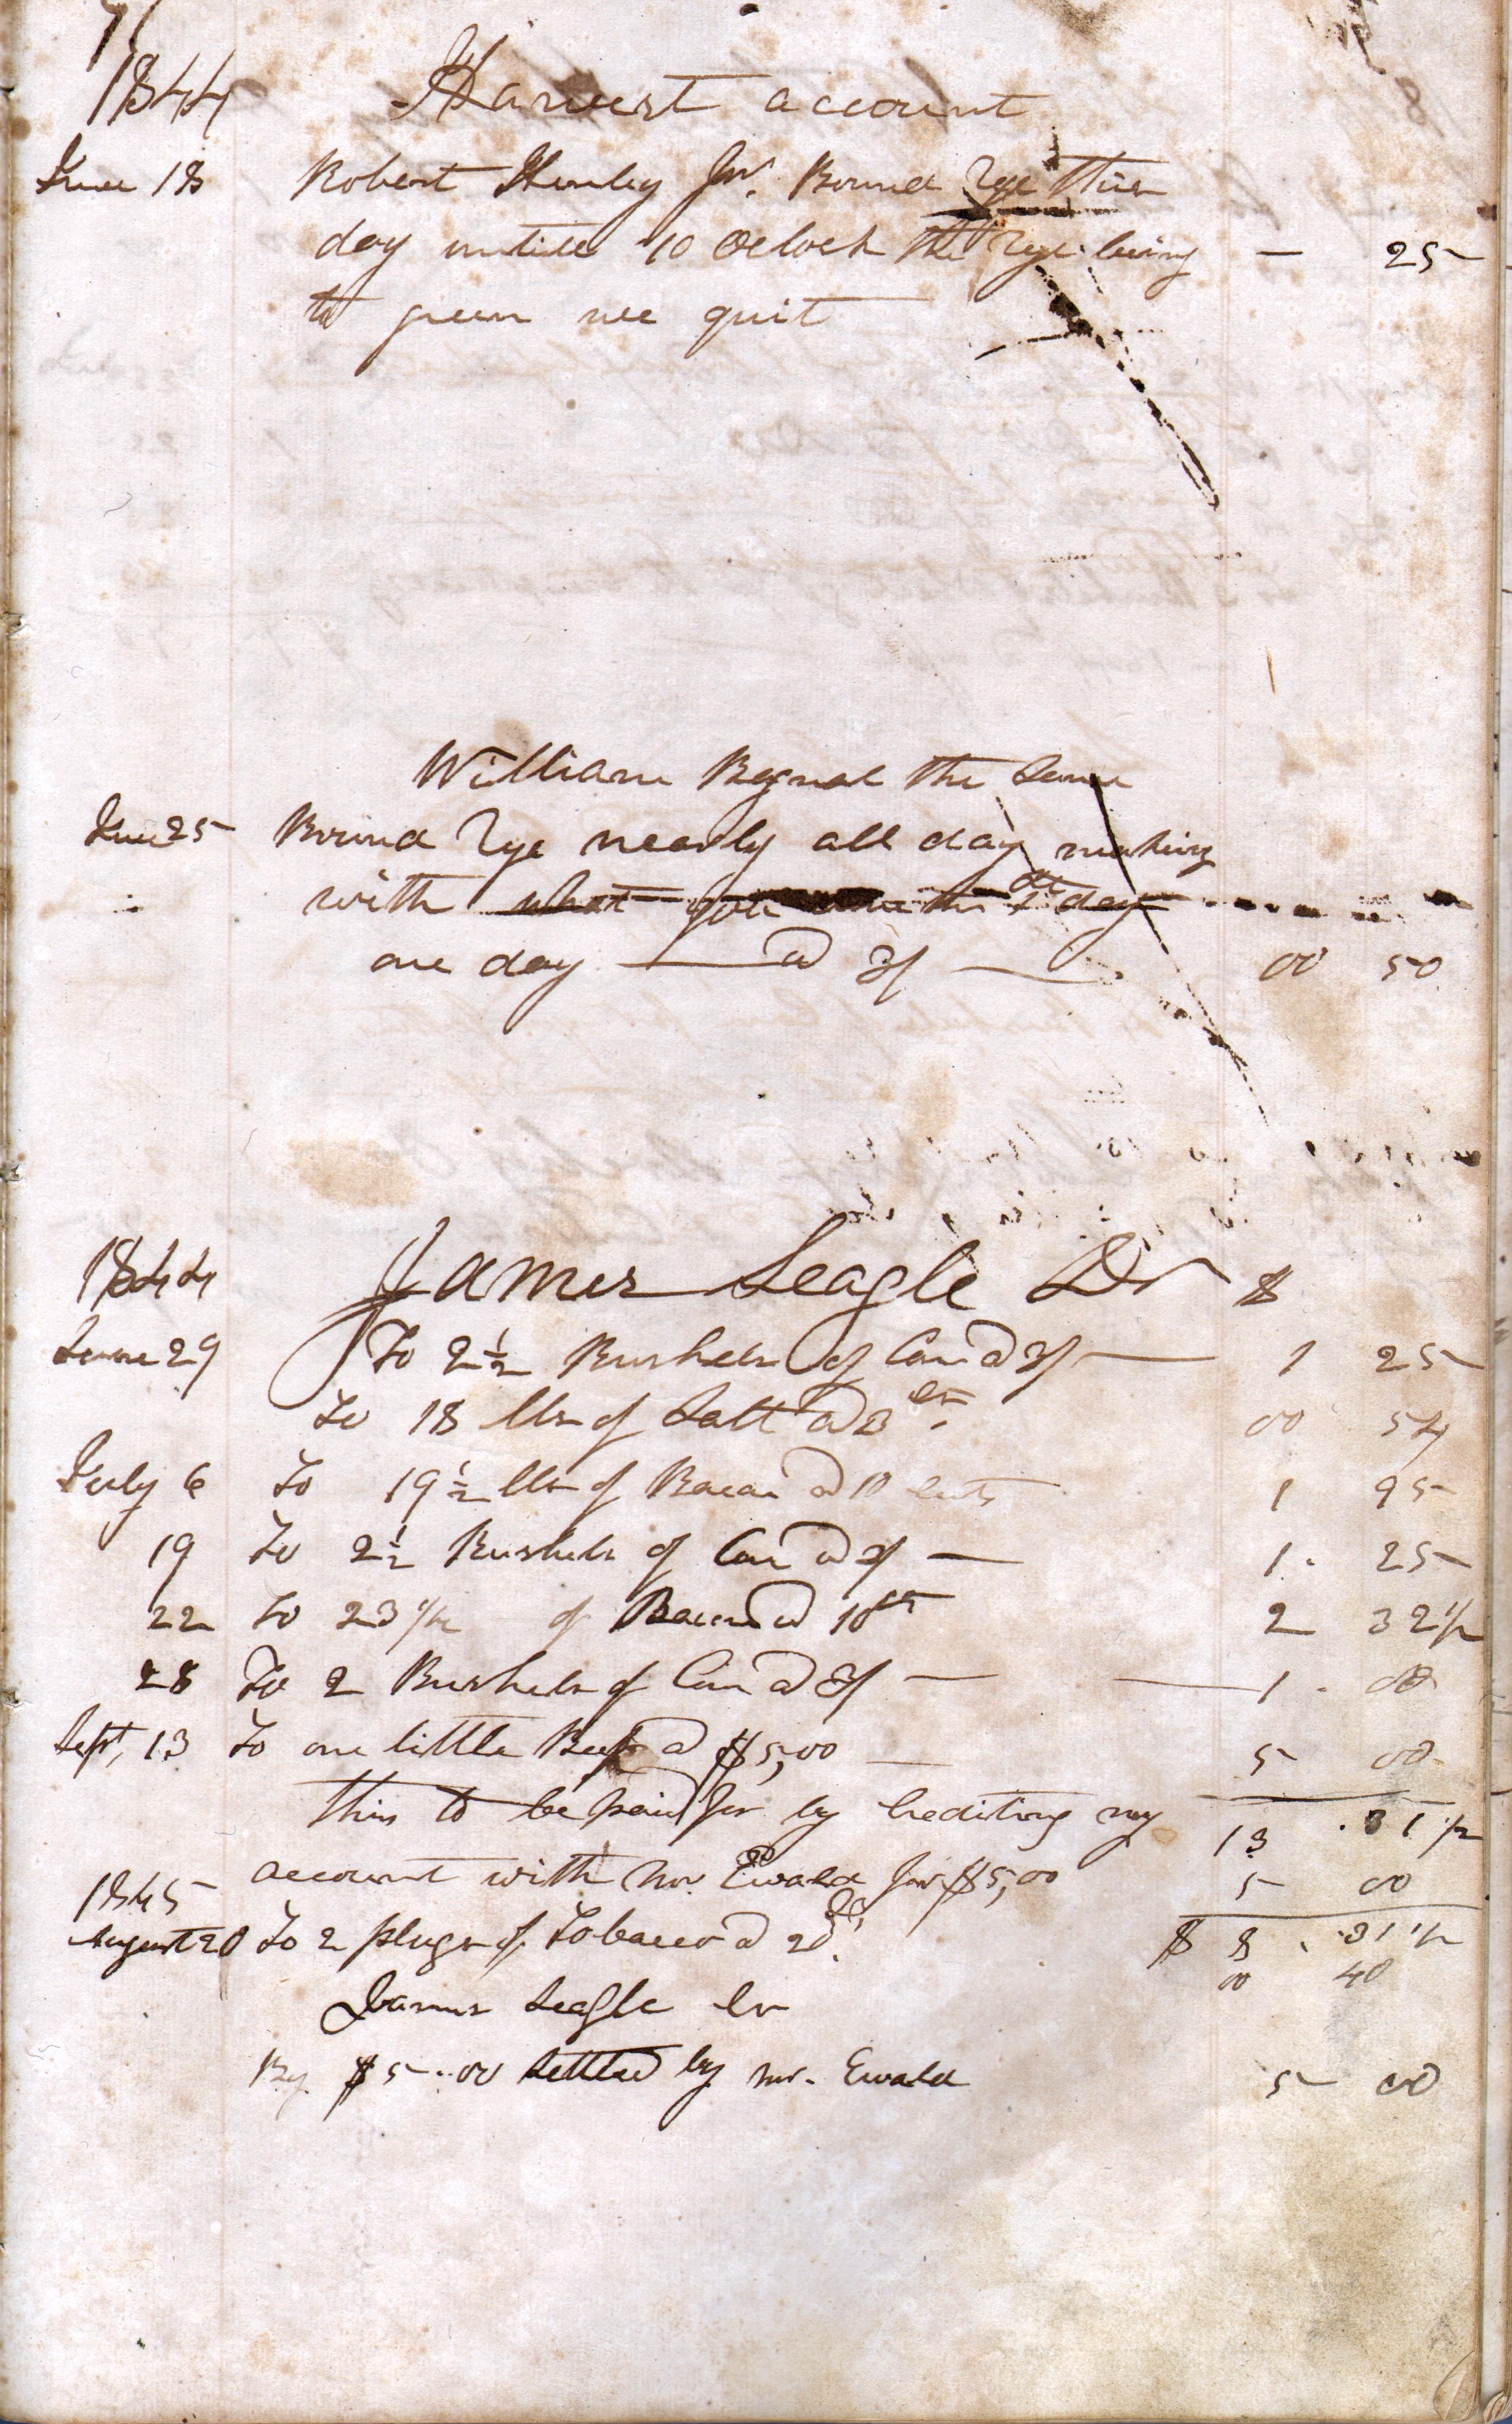 1844 Harvest account
June 18 Robert Henley Jnr. Bound Rye this
day untill 10 Oclock the Rye being — 25
to green we quit
William Bignal the Same
June 25 Bound Rye nearly all day making
with what you the 1st day
one day — @ 3/ — 00 50
1844 James Seagle Dr $
June 29 To 2 1/2 Bushels of Corn @ 3/ — 1 25
To 18 lbs of Salt @ 3 cts 00 54
July 6 To 19 1/2 lbs of Bacon @ 10 cents 1 95
19 To 2 1/2 Bushels of Corn @ 3/ — 1. 25
22 To 23 1/4 of Bacon @ 10 cts 2 32 1/2
28 To 2 Bushels of Corn @ 3/ — 1. 00
Sept, 13 To one little Beef @ $5,00 5 00
this to be paid for by Crediting my 13 .31 1/2
account with Mr. Ewald for $5,00 5 00
1845
August 20 To 2 plugs of Tobacco @ 20 $ 8 . 31 1/2
00 40
James Seagle Cr
By $5..00 Settled by Mr. Ewald 5 00